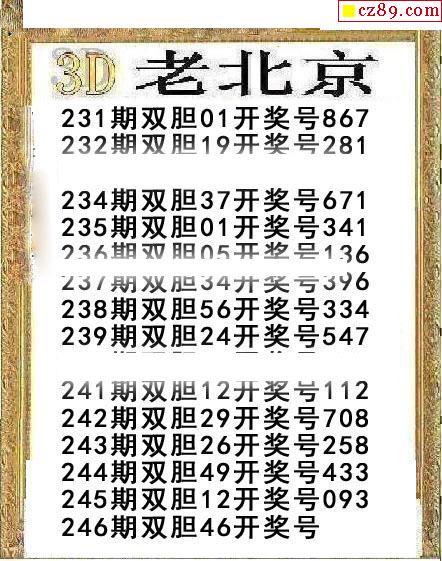 cz89.com
3D 老北京
231期双胆01开奖号867
232期双胆19开奖号281
234期双胆37开奖号671
235期双胆01开奖号341
236期双胆05开奖号136
237期双胆34开奖号396
238期双胆56开奖号334
239期双胆24开奖号547
241期双胆12开奖号112
242期双胆29开奖号708
243期双胆26开奖号258
244期双胆49开奖号433
245期双胆12开奖号093
246期双胆46开奖号